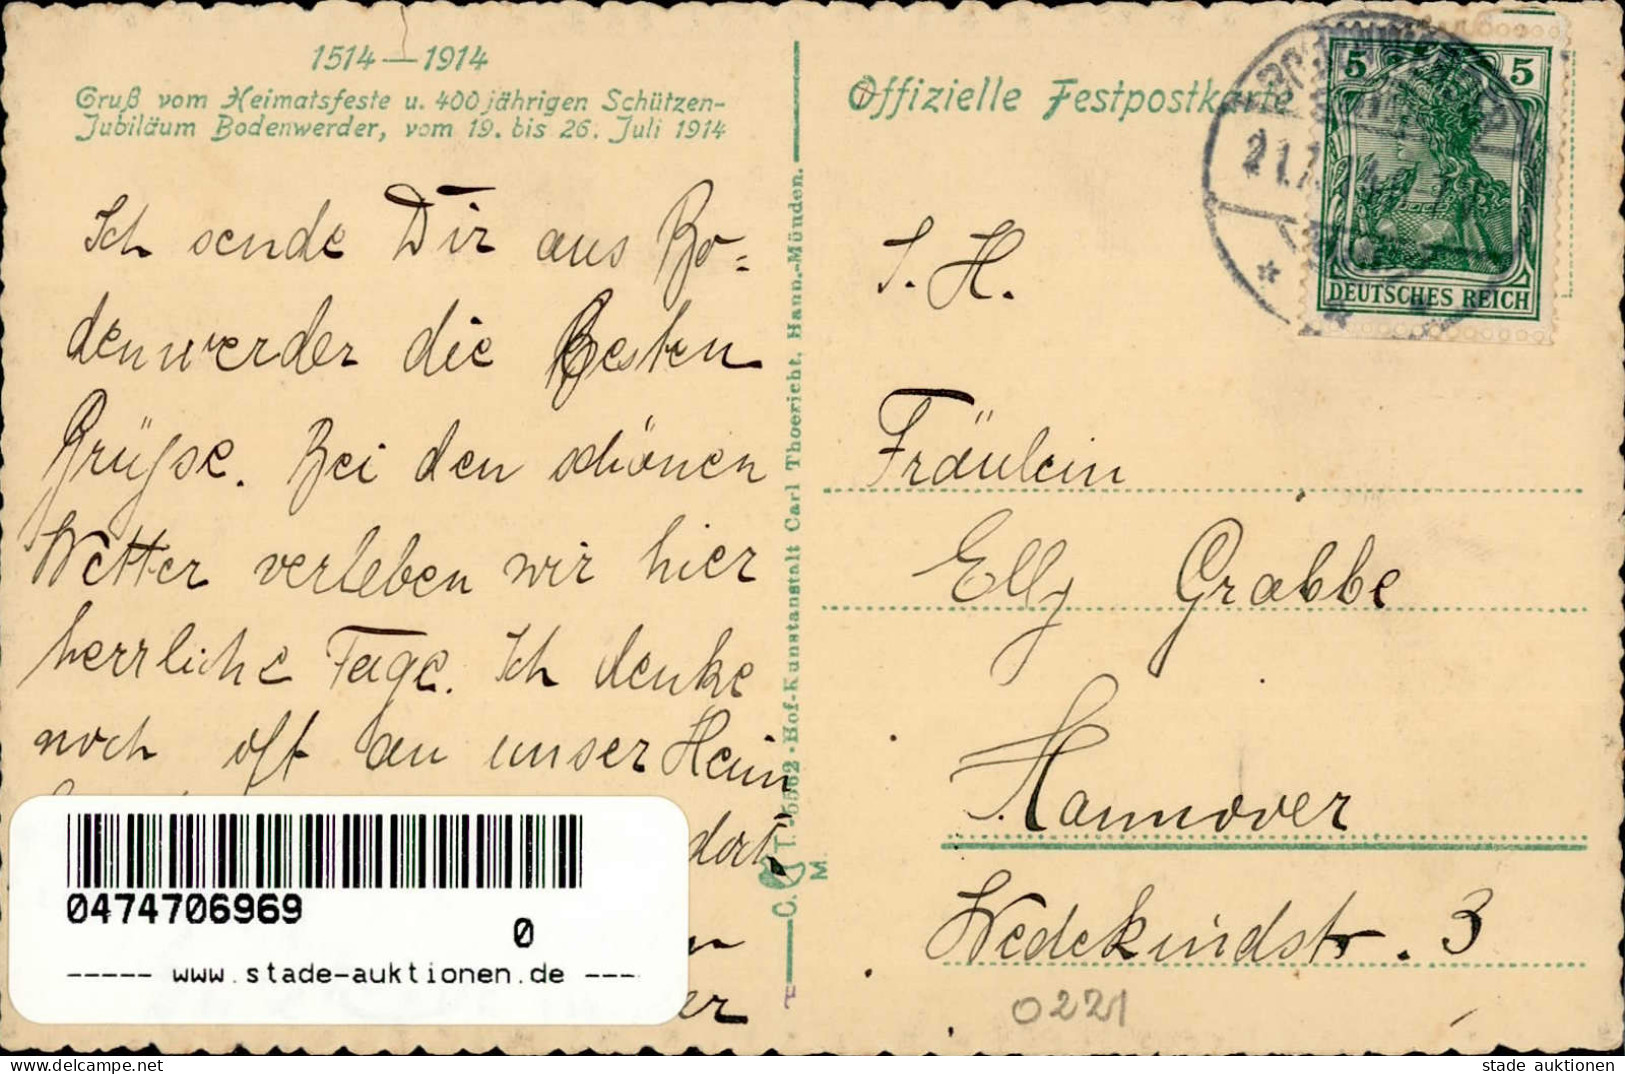 1514—1914
Gruß vom Heimatsfeste u. 400jährigen Schützen-
Jubiläum Bodenwerder, vom 19. bis 26. Juli 1914
Ich sende Dir aus Bo=
denwerder die Besten
Grüsse. Bei den schönen
Wetter verleben wir hier
herrliche Tage. Ich denke
noch oft an unser Heim
dort,
er
C. T. M. 5562 · Hof-Kunstanstalt Carl Thoericht, Hann.-Münden.
Offizielle Festpostkarte
5 5
DEUTSCHES REICH
21.7.14
S. H.
Fräulein
Elly Grabbe
Hannover
Wedekindstr. 3
0221
0474706969
0
----- www.stade-auktionen.de ---
www.oldthing.de
stade auktionen